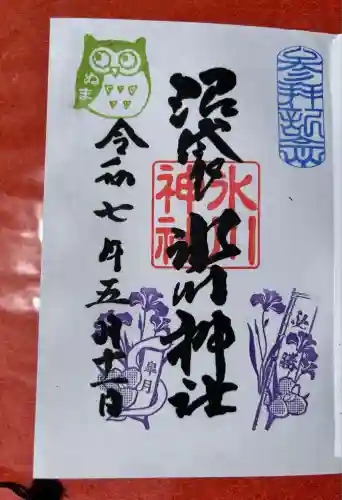 参拝記念
沼袋 氷川神社
氷川神社
令和七年五月十一日
ぬま
必勝
皐月